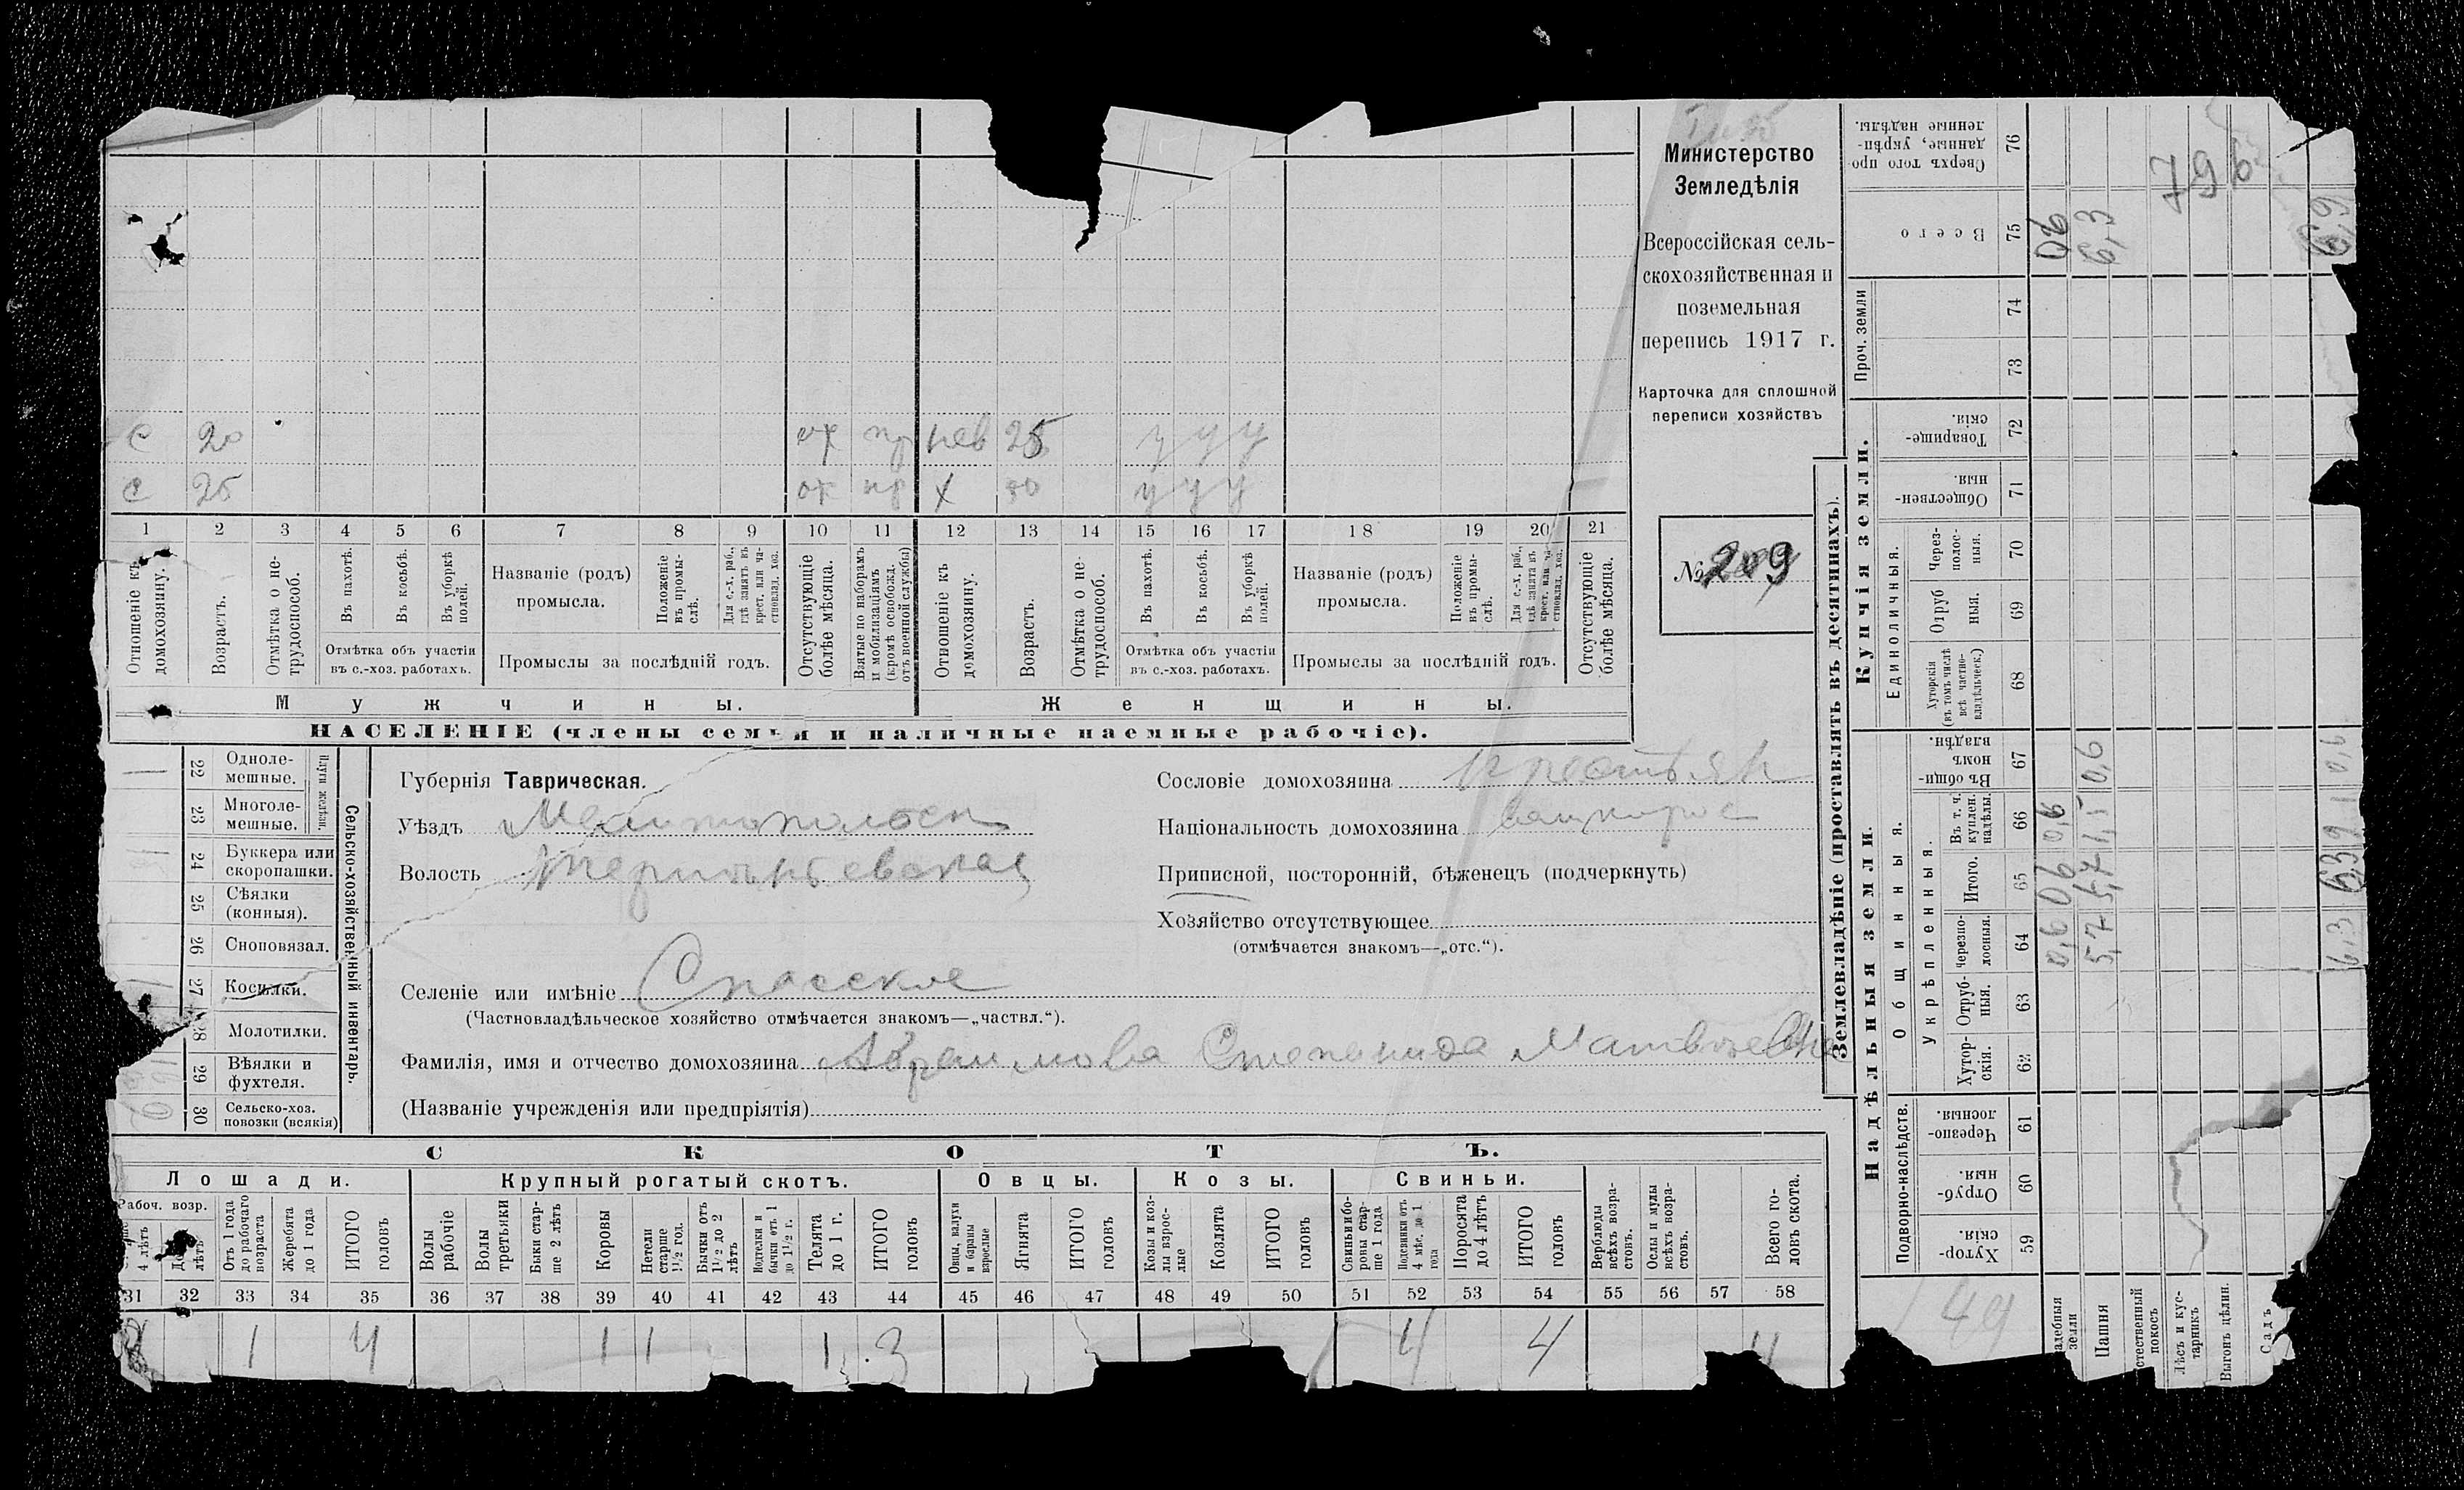 С 20 пр нев 25 у у у
С 25 пр х 50 у у у
1 2 3 4 5 6 7 8 9 10 11 12 13 14 15 16 17 18 19 20 21
Отношеніе къ домохозяину.
Возрастъ.
Отмѣтка о не-
трудоспособ.
Въ пахотѣ.
Въ косьбѣ.
Въ уборкѣ
полей.
Отмѣтка объ участіи
въ с.-хоз. работахъ.
Названіе (родъ)
промысла.
Положеніе
въ промы-
слѣ.
Для с.-х. раб.,
гдѣ занятъ въ
крест. или ча-
стновлад. хоз.
Промыслы за послѣдній годъ.
Отсутствующіе
болѣе мѣсяца.
Взятые по наборамъ
и мобилизаціямъ
(кромѣ освобожд.
отъ военной службы)
Отношеніе къ
домохозяину.
Возрастъ.
Отмѣтка о не-
трудоспособ.
Въ пахотѣ.
Въ косьбѣ.
Въ уборкѣ
полей.
Отмѣтка объ участіи
въ с.-хоз. работахъ.
Названіе (родъ)
промысла.
Положеніе
въ промы-
слѣ.
Для с.-х. раб.,
гдѣ занята въ
крест. или ча-
стновлад. хоз.
Промыслы за послѣдній годъ.
Отсутствующіе
болѣе мѣсяца.
Мужчины.
Женщины.
НАСЕЛЕНІЕ (члены семьи и наличные наемные рабочіе).
Министерство
Земледѣлія
Всероссійская сель-
скохозяйственная и
поземельная
перепись 1917 г.
Карточка для сплошной
переписи хозяйствъ
№ 209
22 Одноле-
мешные.
23 Многоле-
мешные.
Плуги желѣзн.
24 Буккера или
скоропашки.
25 Сѣялки
(конныя).
26 Сноповязал.
27 Косилки.
28 Молотилки.
29 Вѣялки и
фухтеля.
30 Сельско-хоз.
повозки (всякія)
Сельско-хозяйственный инвентарь.
Губернія Таврическая.
Уѣздъ Мелитопольск
Волость Терпѣньевская
Селеніе или имѣніе Спасское
(Частновладѣльческое хозяйство отмѣчается знакомъ—„частвл.“).
Фамилія, имя и отчество домохозяина Абрамова Степанида Матвѣевна
(Названіе учрежденія или предпріятія)
Сословіе домохозяина крестьян
Національность домохозяина
Приписной, посторонній, бѣженецъ (подчеркнуть)
Хозяйство отсутствующее
(отмѣчается знакомъ—„отс.“).
СКОТЪ.
Лошади. Крупный рогатый скотъ. Овцы. Козы. Свиньи.
Рабоч. возр.
4 лѣтъ
До
лѣтъ
Отъ 1 года
до рабочаго
возраста
Жеребята
до 1 года
ИТОГО
головъ
Волы
рабочіе
Волы
третьяки
Быки стар-
ше 2 лѣтъ
Коровы
Нетели
старше
1½ год.
Бычки отъ
1½ до 2
лѣтъ
Подтелки и
бычки отъ 1
до 1½ г.
Телята
до 1 г.
ИТОГО
головъ
Овцы, валухи
и бараны
взрослые
Ягнята
ИТОГО
головъ
Козы и коз-
лы взрос-
лые
Козлята
ИТОГО
головъ
Свиньи и бо-
ровы стар-
ше 1 года
Подсвинки отъ
4 мѣс. до 1
года
Поросята
до 4 лѣтъ
ИТОГО
головъ
Верблюды
всѣхъ возра-
стовъ.
Ослы и мулы
всѣхъ возра-
стовъ.
Всего го-
ловъ скота.
31 32 33 34 35 36 37 38 39 40 41 42 43 44 45 46 47 48 49 50 51 52 53 54 55 56 57 58
1 4 1 1 1 3 4 4
Землевладѣніе (проставлять въ десятинахъ).
Надѣльныя земли. Купчія земли. Проч. земли
Подворно-наслѣдств.
Общинныя.
Укрѣпленныя.
Единоличныя.
Хутор-
скія. 59
Отруб-
ныя. 60
Черезпо-
лосныя. 61
Хутор-
скія. 62
Отруб-
ныя. 63
Черезпо-
лосныя. 64
Итого. 65
Въ т. ч.
куплен.
надѣлы. 66
Въ общи-
номъ
владѣн. 67
Хуторскія
(въ томъ числѣ
всѣ частно-
владѣльческ.) 68
Отруб
ныя. 69
Через-
полос-
ныя. 70
Обществен-
ныя. 71
Товарище-
скія. 72
73
74
Всего 75
Сверхъ того про-
данные, укрѣп-
ленные надѣлы. 76
адебныя
земли 0,6 06 0,6 06
Пашня 5,7 5,7 1,5 0,6 6,3
стественный
покосъ
Лѣсъ и кус-
тарникъ
Выгонъ цѣлин.
Садъ
6,3 6,3 0,6 6,9
796
49